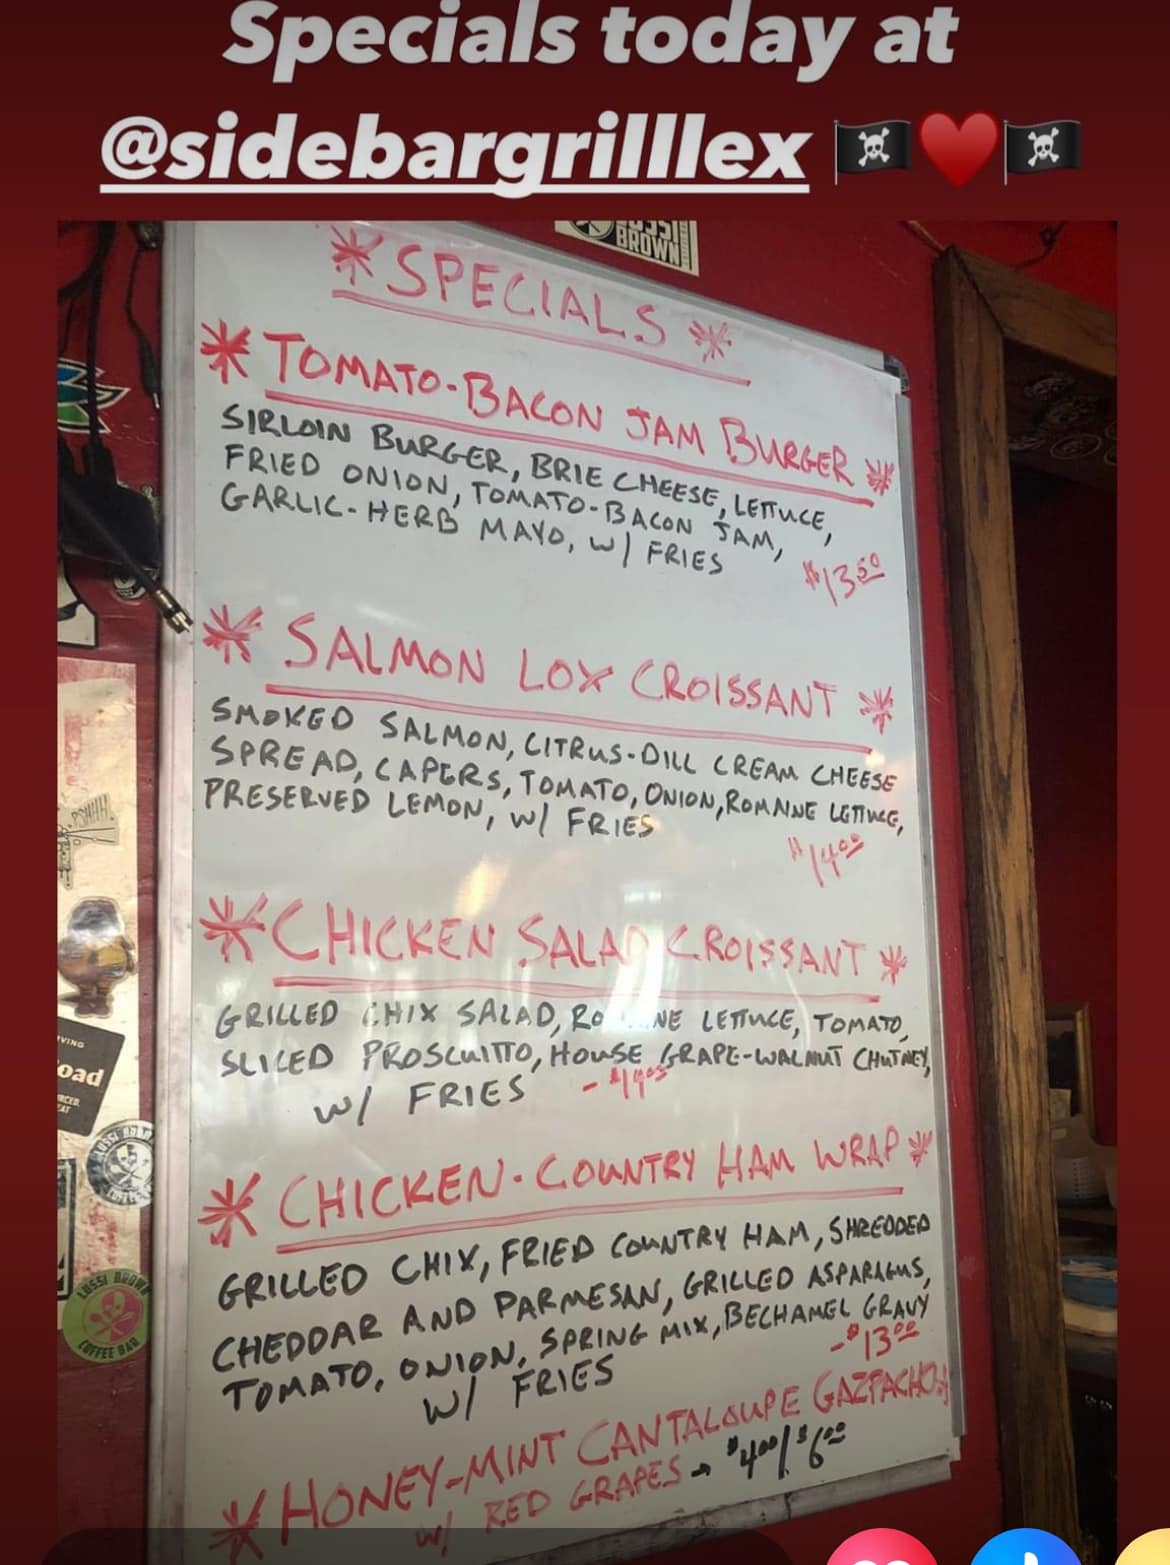 Specials today at
@sidebargrilllex
BROWN
*SPECIALS*
*TOMATO-BACON JAM BURGER*
SIRLOIN BURGER, BRIE CHEESE, LETTUCE,
FRIED ONION, TOMATO-BACON JAM,
GARLIC-HERB MAYO, W/ FRIES
$13.50
*SALMON LOX CROISSANT*
SMOKED SALMON, CITRUS-DILL CREAM CHEESE
SPREAD, CAPERS, TOMATO, ONION, ROMAINE LETTUCE,
PRESERVED LEMON, W/ FRIES
$14.00
*CHICKEN SALAD CROISSANT*
GRILLED CHIX SALAD, ROMAINE LETTUCE, TOMATO,
SLICED PROSCUITTO, HOUSE GRAPE-WALNUT CHUTNEY,
W/ FRIES
*CHICKEN-COUNTRY HAM WRAP*
GRILLED CHIX, FRIED COUNTRY HAM, SHREDDED
CHEDDAR AND PARMESAN, GRILLED ASPARAGUS,
TOMATO, ONION, SPRING MIX, BECHAMEL GRAVY
W/ FRIES
-$13.00
*HONEY-MINT CANTALOUPE GAZPACHO*
W/ RED GRAPES → $4.00/$6.00
PSHHH!
oad
LUSSI BROWN
COFFEE BAR